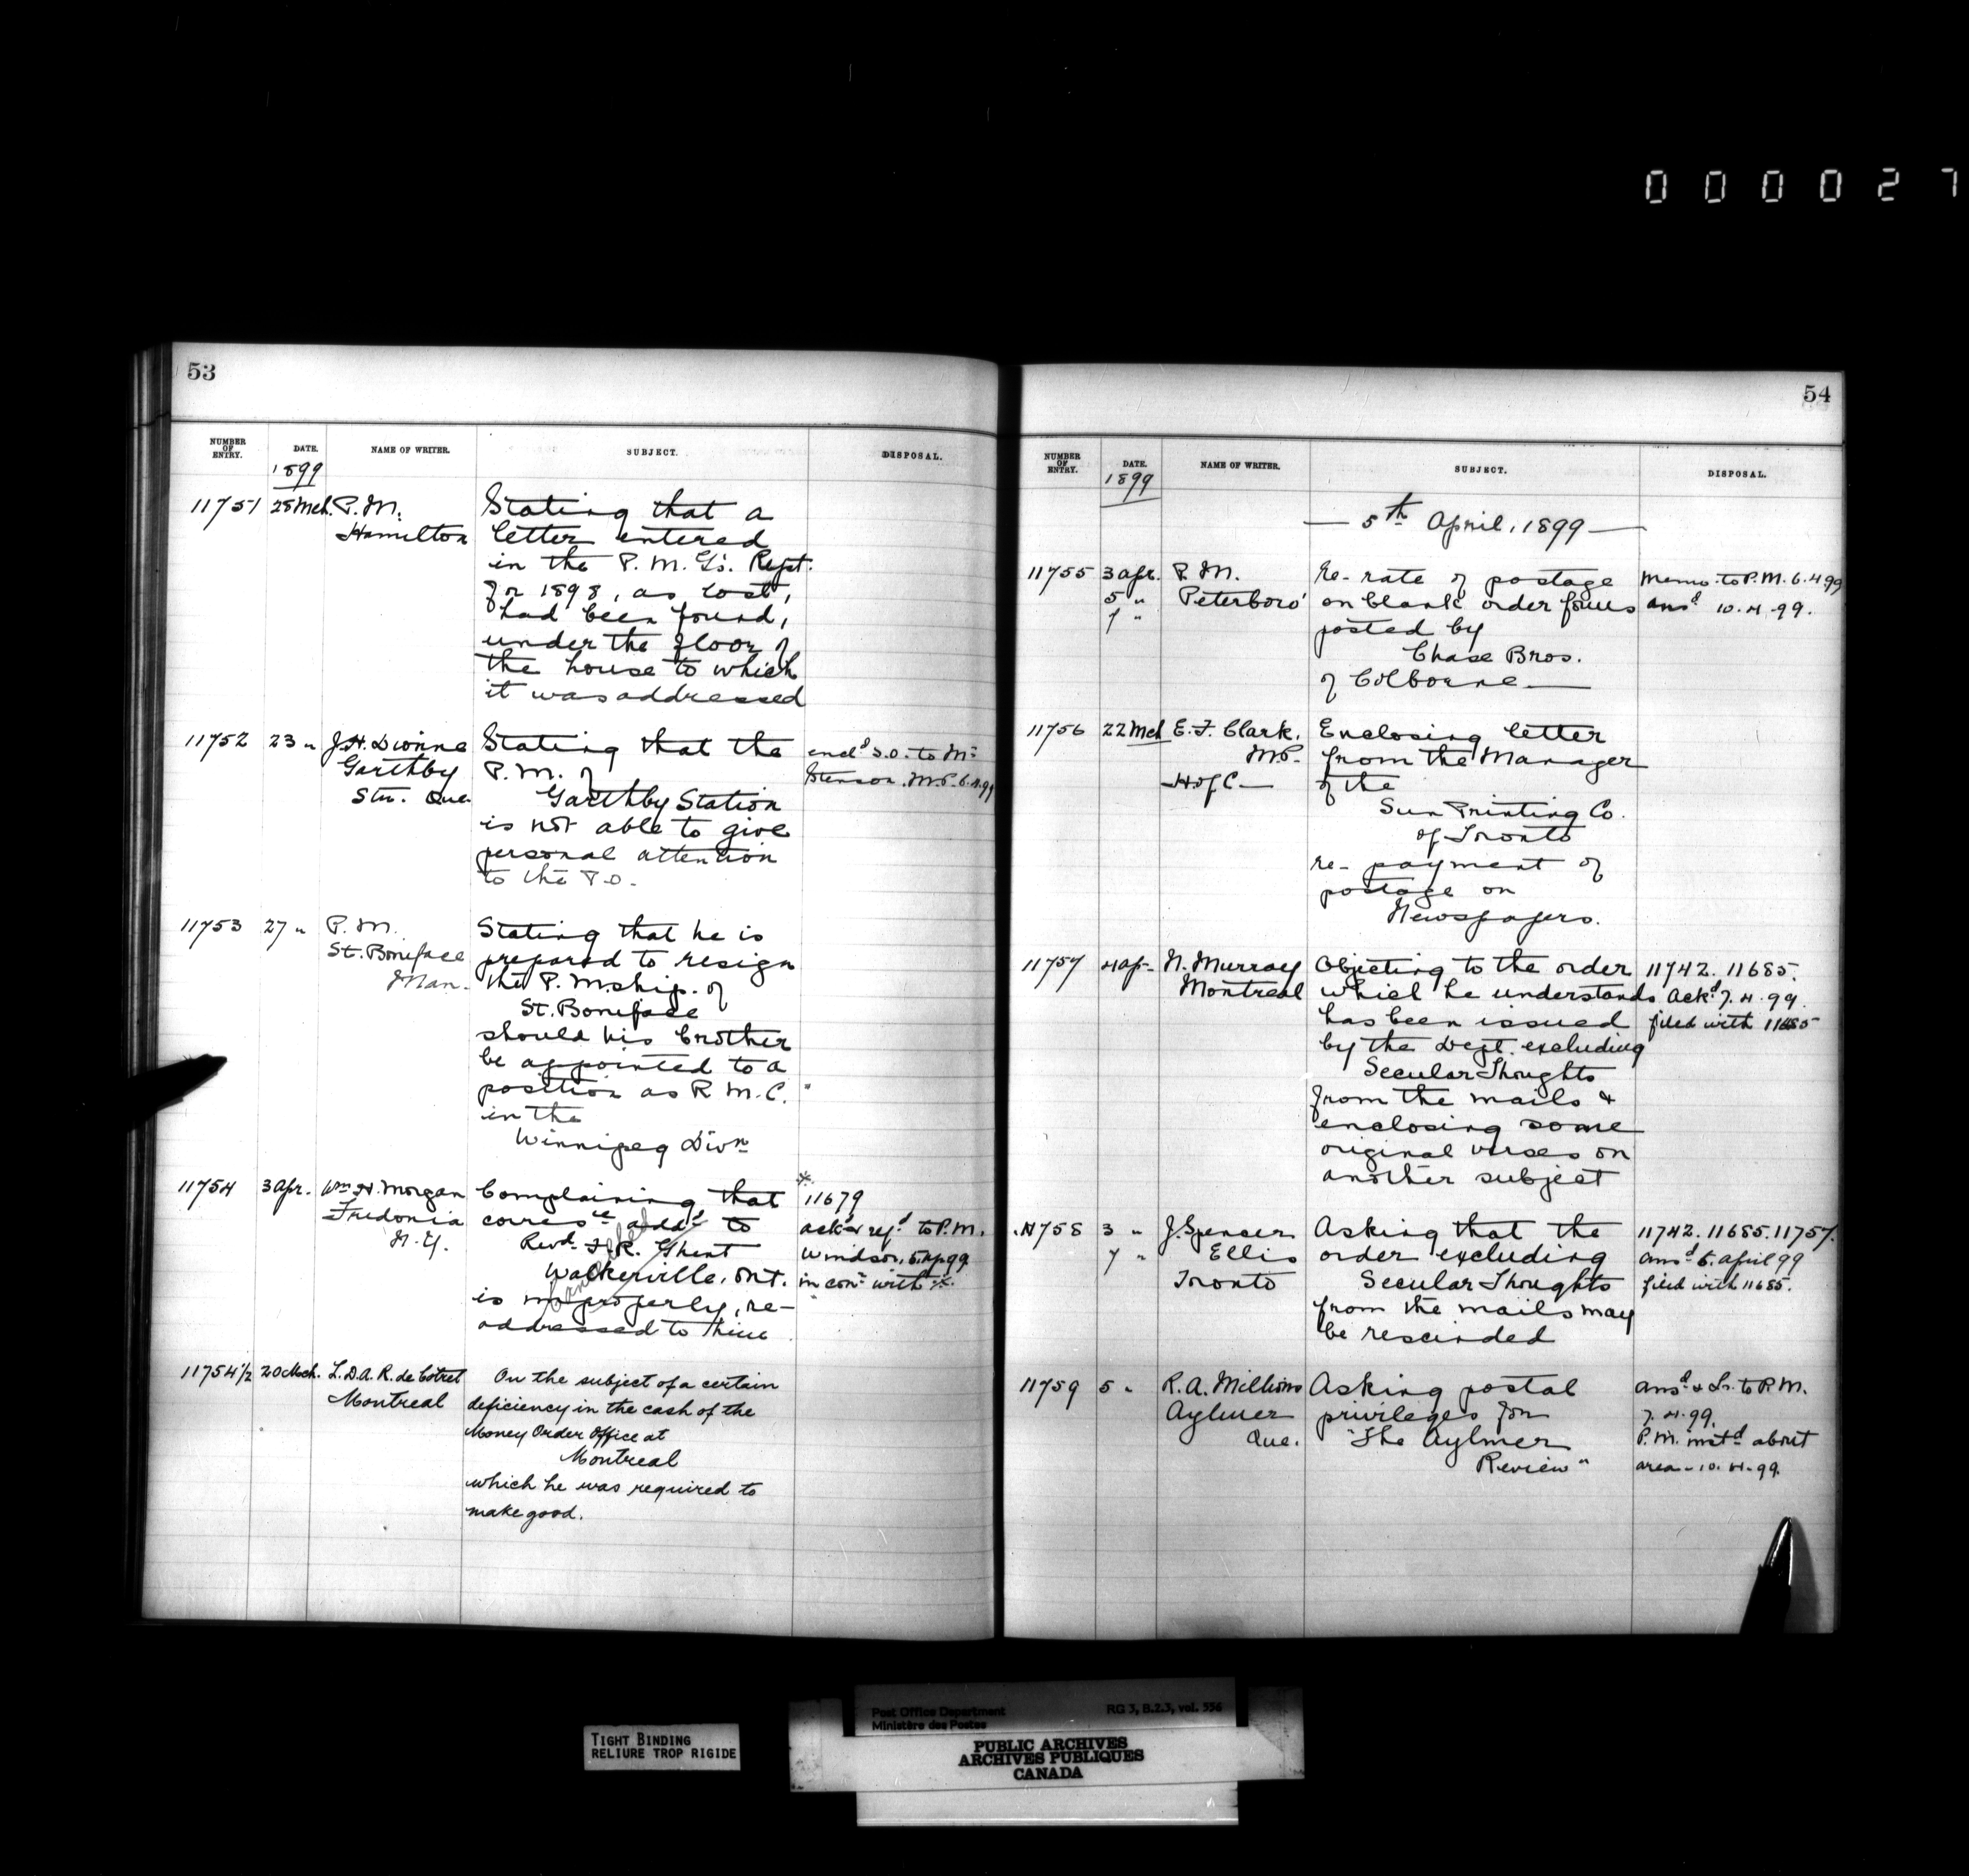 0 0 0 0 2 7
53
NUMBER OF ENTRY. DATE. NAME OF WRITER. SUBJECT. DISPOSAL.
1899
11751 28 Mch. P.M. Hamilton
Stating that a
letter entered
in the P. M. G's. Rept.
for 1898, as lost,
had been found,
under the floor of
the house to which
it was addressed
11752 23 " J.H. Dionne
Garthby
Stn. Que.
Stating that the
P.M. of
Garthby Station
is not able to give
personal attention
to the P.O.
encld. S.O. to Mr.
Stenson. M.P. 6.4.99
11753 27 " P.M.
St. Boniface
Man.
Stating that he is
prepared to resign
the P. M.ship. of
St. Boniface
should his brother
be appointed to a
position as R. M. C.
in the
Winnipeg Divn
11754 3 Apr. Wm. H. Morgan
Fredonia
N.Y.
Complaining that
corresce addd to
Revd. F.R. Ghent
Walkerville, Ont.
is improperly, re-
addressed to him
*
11679
ackd & refd to P.M.
Windsor, 5. Ap 99
in conn with *.
11754 1/2 20 Mch. L.D.A.R. de Cotret
Montreal
On the subject of a certain
deficiency in the cash of the
Money Order Office at
Montreal
which he was required to
make good.
54
NUMBER OF ENTRY. DATE. NAME OF WRITER. SUBJECT. DISPOSAL.
1899
— 5th April, 1899 —
11755 3 Apr. P.M.
5 " Peterboro'
7 "
Re- rate of postage
on blank order forms
posted by
Chase Bros.
of Colborne —
Memo. to P.M. 6.4.99
ansd 10.4.99.
11756 22 Mch E.F. Clark,
M.P.
H of C —
Enclosing letter
from the Manager
of the
Sun Printing Co.
of Toronto
re- payment of
postage on
Newspapers.
11757 4 Ap- N. Murray
Montreal
Objecting to the order
which he understands
has been issued
by the Dept. excluding
Secular Thoughts
from the mails &
enclosing some
original verses on
another subject
11742. 11685.
Ackd 7.4.99.
filed with 11685
11758 3 " J. Spencer
7 " Ellis
Toronto
Asking that the
order excluding
Secular Thoughts
from the mails may
be rescinded
11742. 11685. 11757.
ansd 6. April 99
filed with 11685.
11759 5 " R.A. Millions
Aylmer
Que.
Asking postal
privileges for
"The Aylmer
Review"
ansd & Lr. to P.M.
7.4.99.
P.M. instd about
area - 10.4.99.
TIGHT BINDING
RELIURE TROP RIGIDE
Post Office Department
Ministère des Postes
RG 3, B.2.3, vol. 556
PUBLIC ARCHIVES
ARCHIVES PUBLIQUES
CANADA